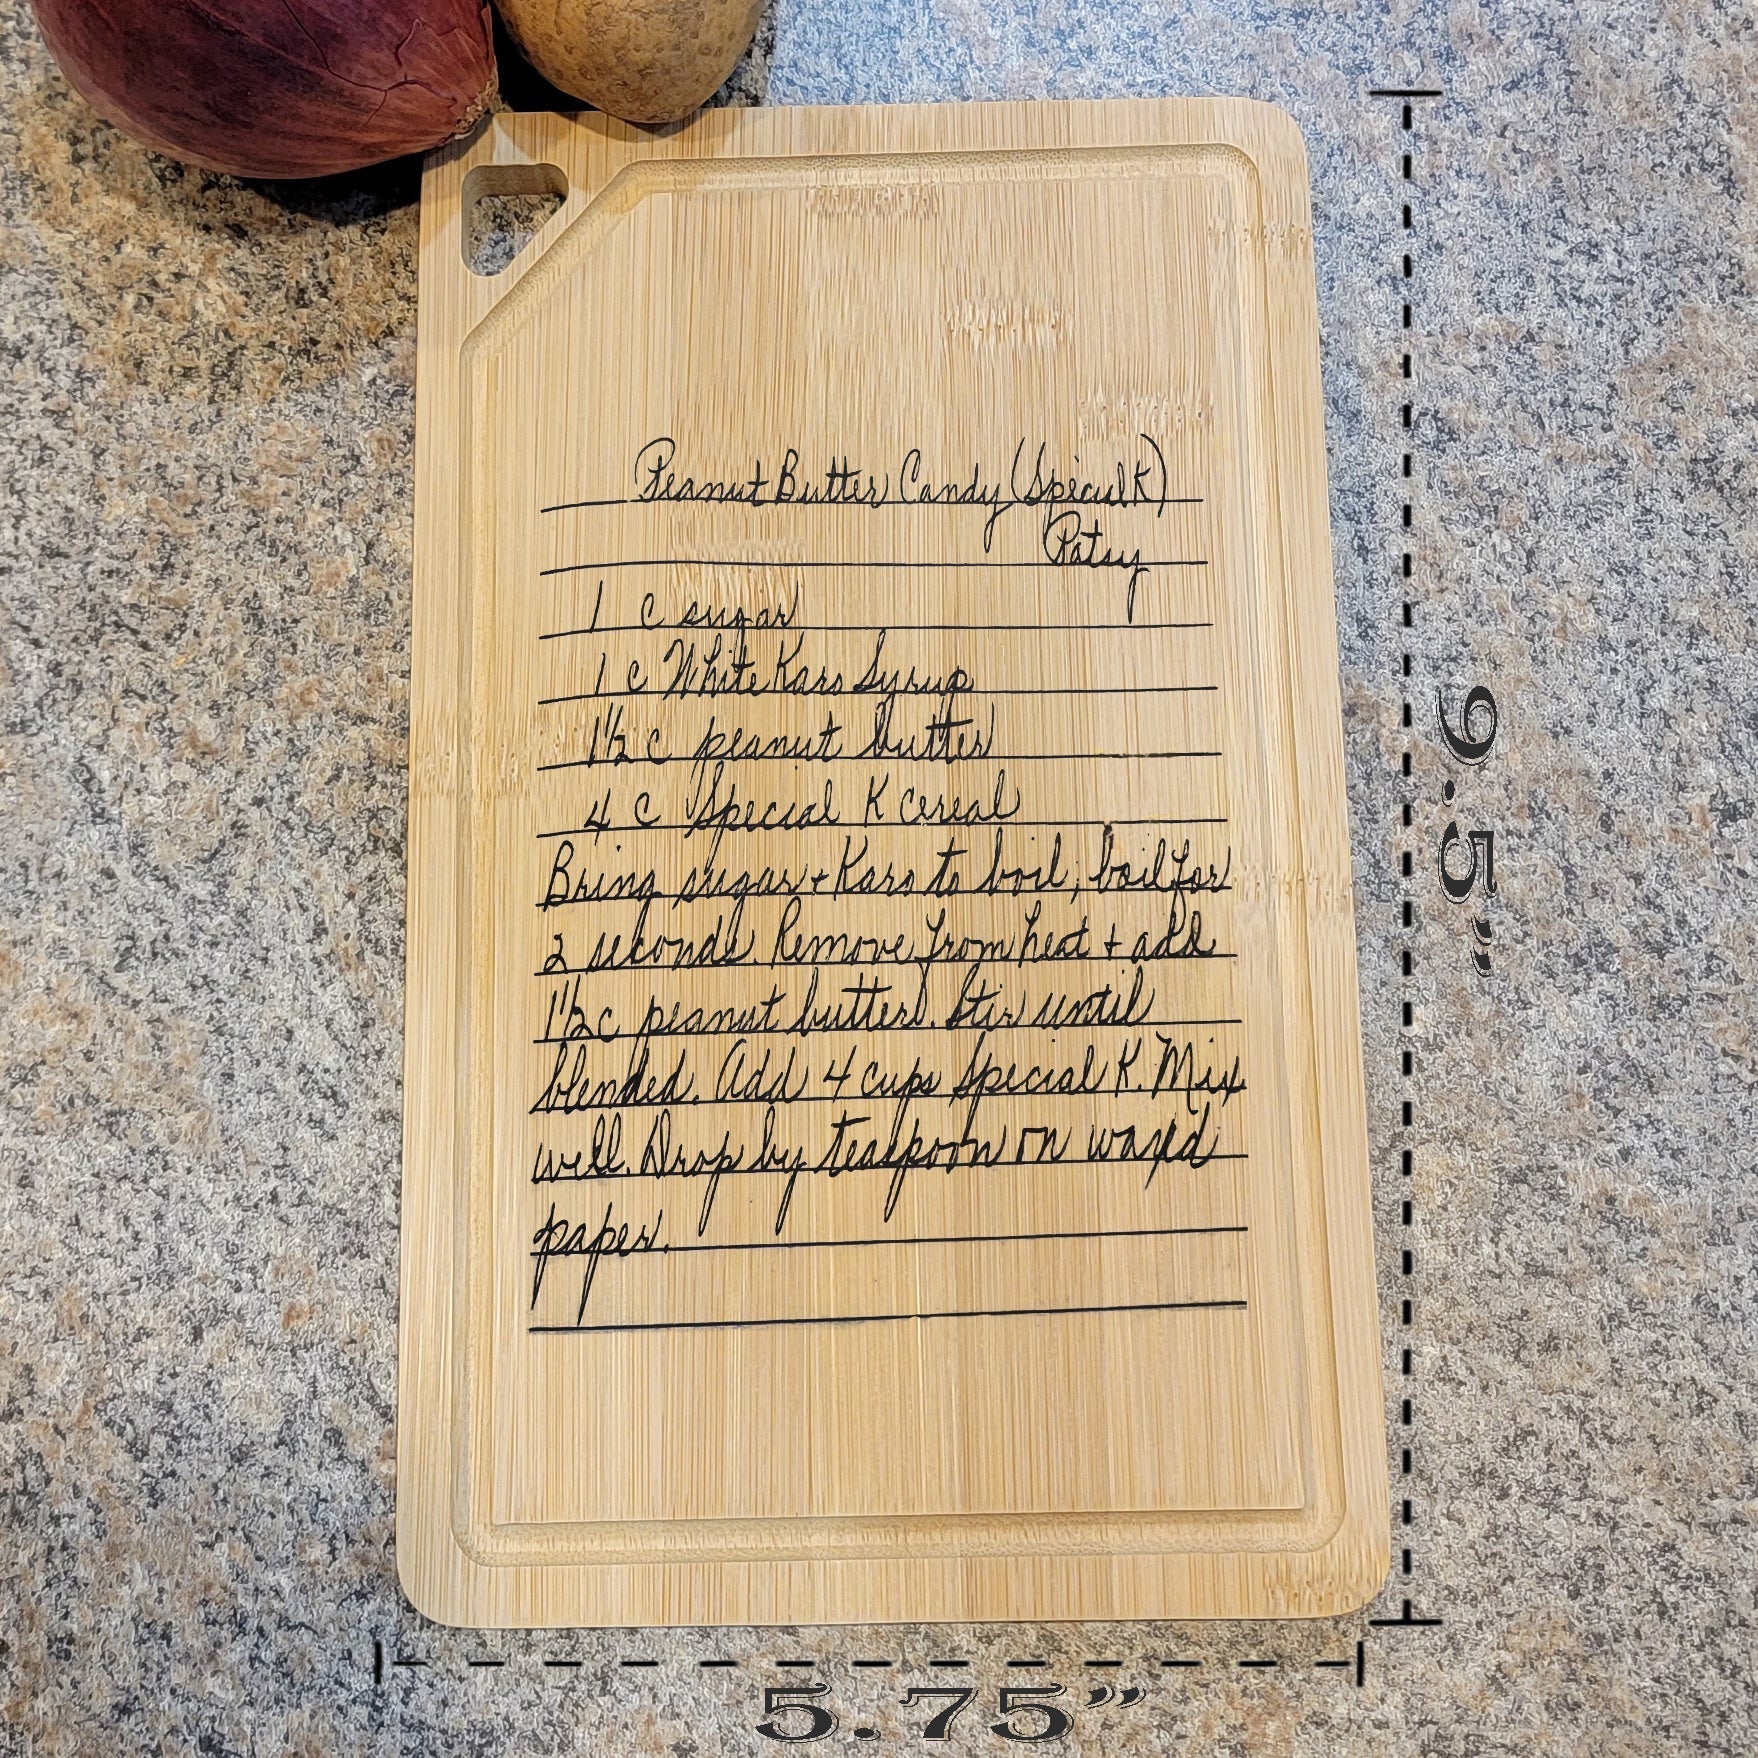 Peanut Butter Candy (Special K)
Patsy
1 c sugar
1 c White Karo Syrup
1 1/2 c peanut butter
4 c Special K cereal
Bring sugar + Karo to boil; boil for
2 seconds. Remove from heat + add
1 1/2 c peanut butter. Stir until
blended. Add 4 cups Special K. Mix
well. Drop by teaspoon on waxed
paper.
9.5”
5.75”